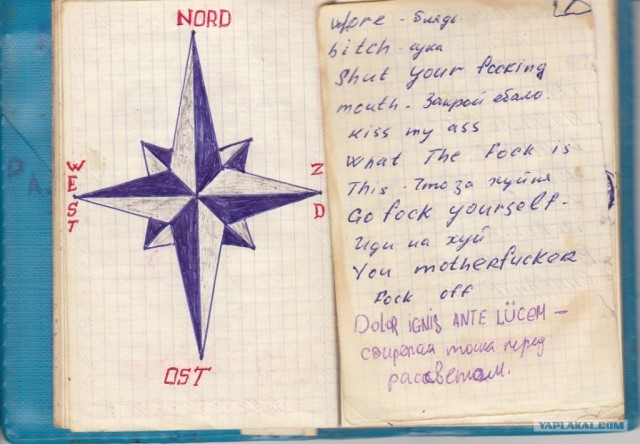 NORD
WEST
Z D
OST
whore - блядь
bitch - сука
Shut your focking
mouth - Закрой ебало.
kiss my ass
What The fock is
This - Что за хуйня
Go fock yourself -
иди на хуй
You motherfucker
Fock off
Dolor iGNiS ANTE LÜCEM —
свирепая тоска перед
рассветом.
YAPLAKAL.COM